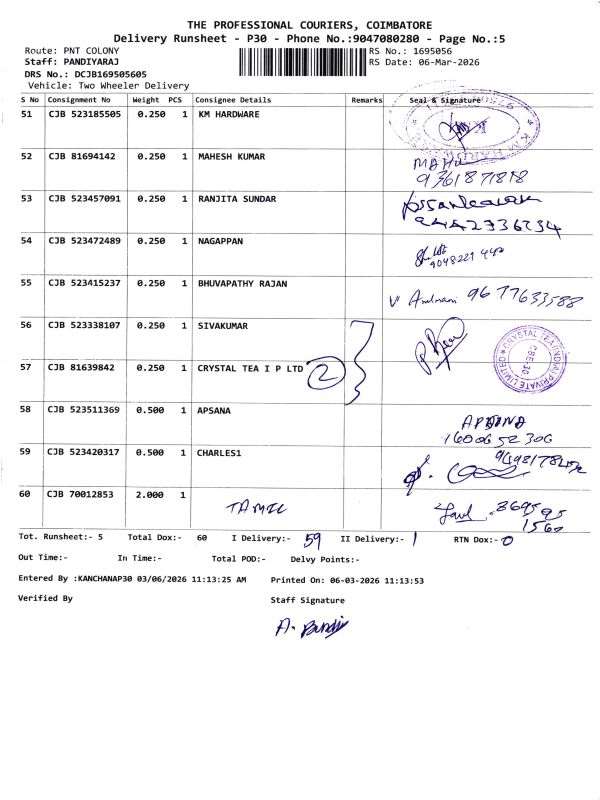 THE PROFESSIONAL COURIERS, COIMBATORE
Delivery Runsheet - P30 - Phone No.:9047080280 - Page No.:5
Route: PNT COLONY
RS No.: 1695056
Staff: PANDIYARAJ
RS Date: 06-Mar-2026
DRS No.: DCJB169505605
Vehicle: Two Wheeler Delivery
S No Consignment No Weight PCS Consignee Details Remarks Seal & Signature
51 CJB 523185505 0.250 1 KM HARDWARE
52 CJB 81694142 0.250 1 MAHESH KUMAR
9361871818
53 CJB 523457091 0.250 1 RANJITA SUNDAR
54 CJB 523472489 0.250 1 NAGAPPAN
55 CJB 523415237 0.250 1 BHUVAPATHY RAJAN
9677633588
56 CJB 523338107 0.250 1 SIVAKUMAR
CRYSTAL TEA (INDIA) PRIVATE LIMITED
CBE-30
57 CJB 81639842 0.250 1 CRYSTAL TEA I P LTD 2
58 CJB 523511369 0.500 1 APSANA
APSANA
59 CJB 523420317 0.500 1 CHARLES1
60 CJB 70012853 2.000 1
TAMIL
Tot. Runsheet:- 5 Total Dox:- 60 I Delivery:- 59 II Delivery:- 1 RTN Dox:- 0
Out Time:- In Time:- Total POD:- Delvy Points:-
Entered By :KANCHANAP30 03/06/2026 11:13:25 AM Printed On: 06-03-2026 11:13:53
Verified By Staff Signature